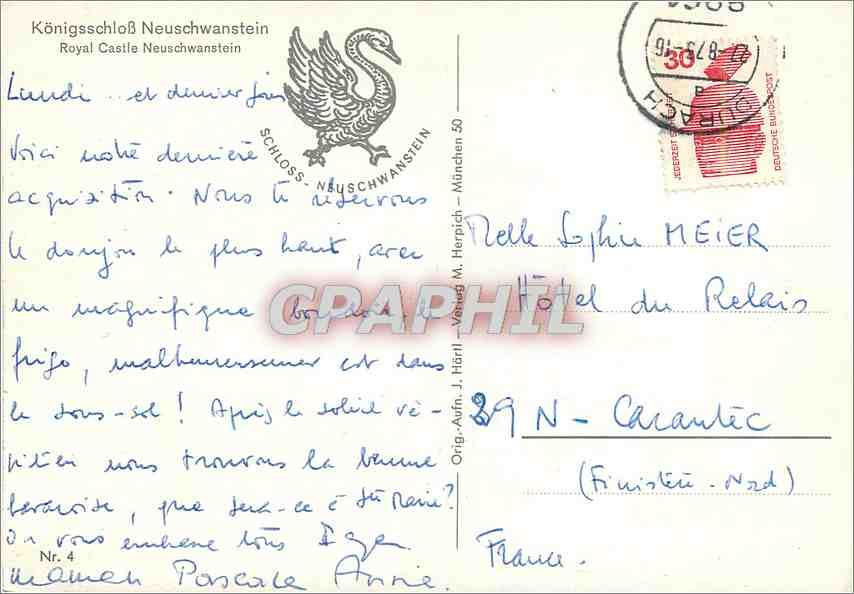 Königsschloß Neuschwanstein
Royal Castle Neuschwanstein
SCHLOSS - NEUSCHWANSTEIN
Lundi .. et dernier jour
Voici notre dernière
acquisition. Nous te réservons
le donjon le plus haut, avec
un magnifique boudoir, le
frigo, malheureusement est dans
le sous-sol ! Après le soleil vé-
nitien nous trouvons la brume
bavaroise, que sera-ce à
On vous embrasse tous
maman Pascale Anne.
Nr. 4
Orig.-Aufn. J. Härtl — Verlag M. Herpich - München 50
30
JEDERZEIT SICHERHEIT
DEUTSCHE BUNDESPOST
27.-8.73-16
a
Melle Sophie MEIER
Hôtel du Relais
29 N - Carantec
(Finistère - Nord)
France.
CPAPHIL